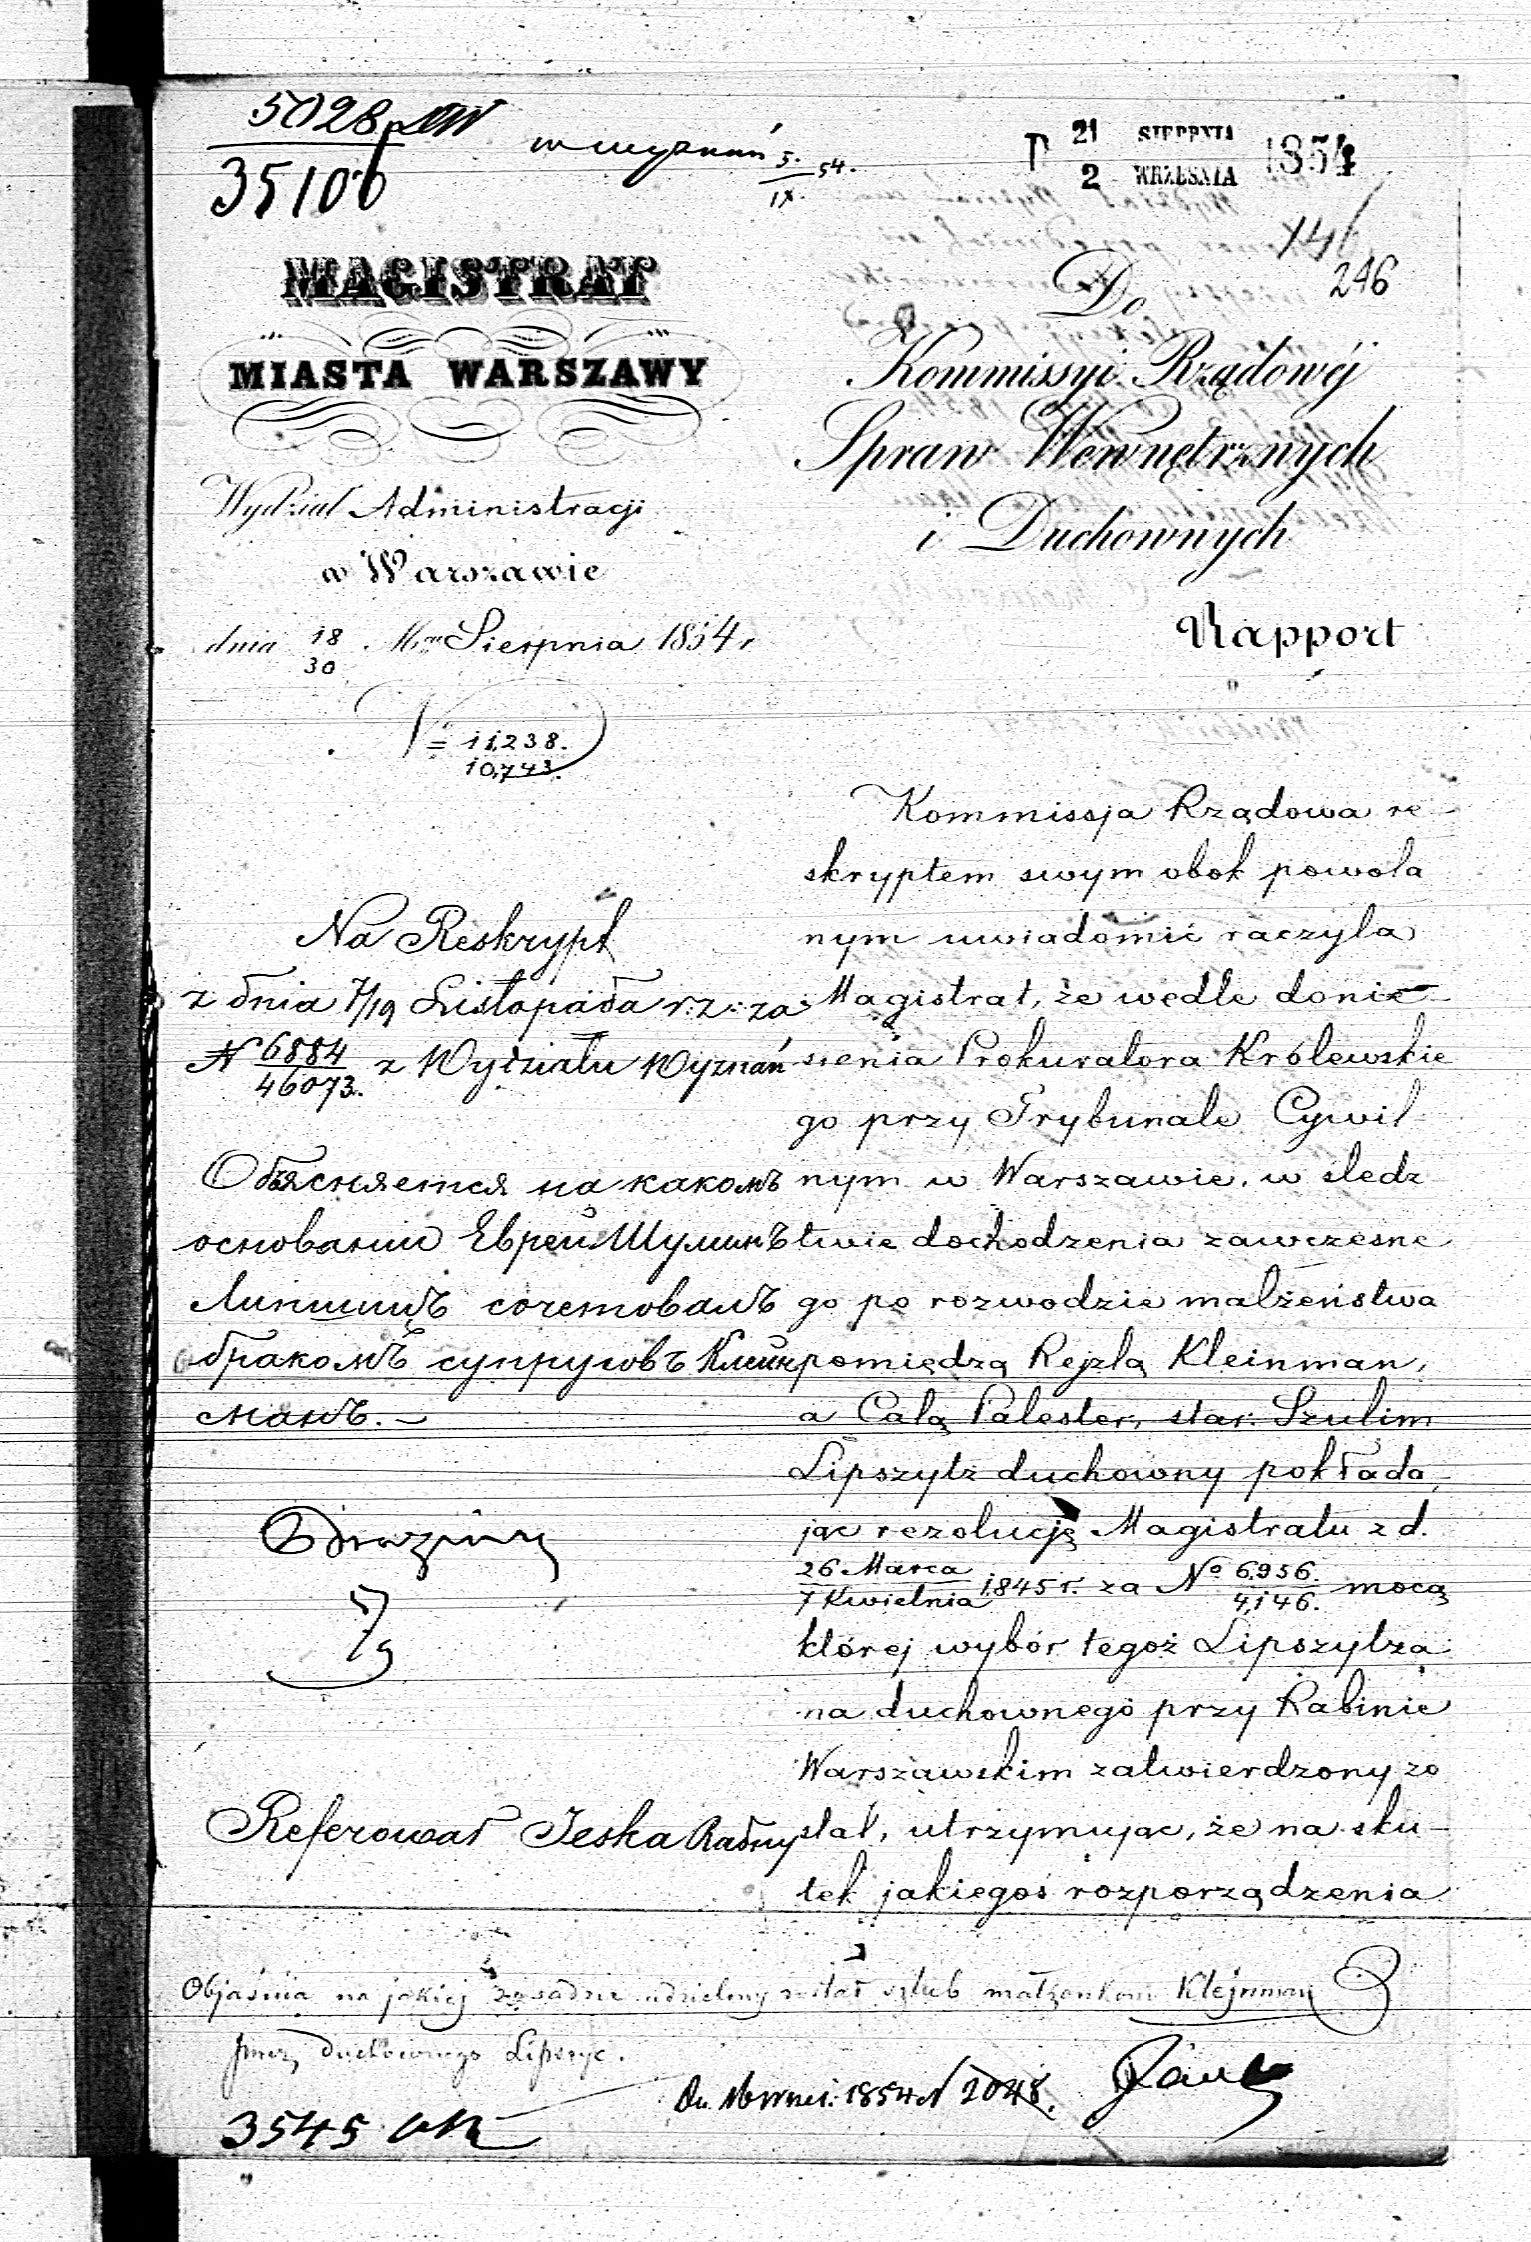 5028
35106
w wyznań 5./IX. 54.
P 21 SIERPNIA
2 WRZEŚNIA 1854
246
MAGISTRAT
MIASTA WARSZAWY
Wydział Administracji
w Warszawie
dnia 18/30 Mca Sierpnia 1854 r
N 11,238.
10,743.
Do
Kommissyi Rządowéj
Spraw Wewnętrznych
i Duchownych
Rapport
Na Reskrypt
z dnia 7/19 Listopada r: z: za
N 6884/46073. z Wydziału Wyznań
Объясняется на какомъ
основании Еврей Шулимъ
Липшицъ сочетовалъ
бракомъ супруговъ Клейн
манъ. –
Referował Jeska Radny
Kommissja Rządowa re
skryptem swym obok powoła
nym uwiadomić raczyła
Magistrat, że wedle donie
sienia Prokuratora Królewskie
go przy Trybunale Cywil
nym w Warszawie, w śledz
twie dochodzenia zawczesne
go po rozwodzie małżeństwa
pomiędzą Rejzlą Kleinman,
a Calą Palester, star. Szulim
Lipszytz duchowny pokłada,
jąc rezolucję Magistratu z d.
26 Marca/7 Kwietnia 1845 r. za No 6,956./4,146. mocą
której wybór tegoż Lipszytza
na duchownego przy Rabinie
Warszawskim zatwierdzony zo
stał, utrzymując, że na sku-
tek jakiegoś rozporządzenia
Objaśnia na jakiej zasadzie udzielony został szlub małżonkom Klejnman
przez duchownego Lipszyc.
1854 N 2048.
3545